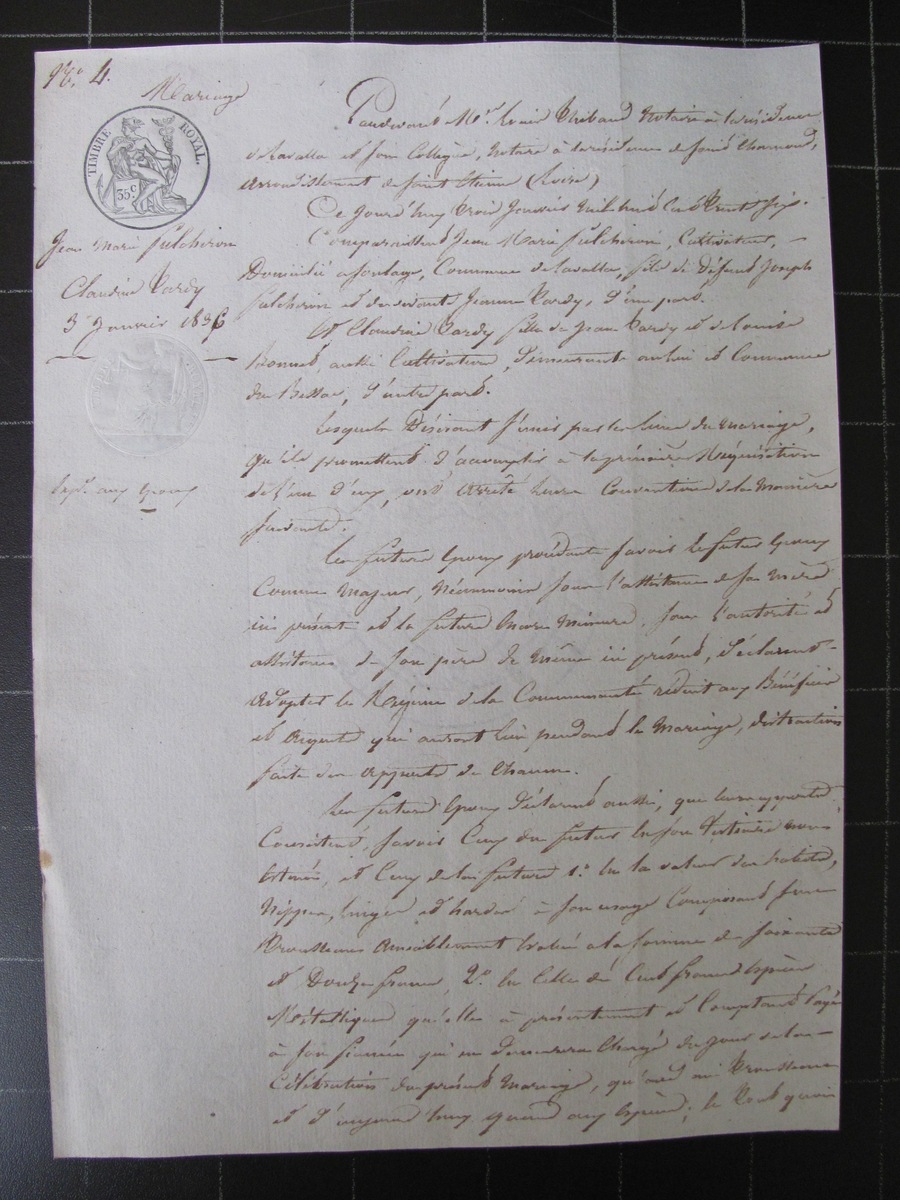 N.º 4.
Mariage
TIMBRE ROYAL.
35c
Jean Marie Fulchiron
Claudine Tardy
3 Janvier 1836
exp.on aux Epoux
Pardevant M.e Louis Thibaud Notaire à la résidence
de Lavalla et son Collegue, Notaire à la résidence de Saint Chamond,
arrondissement de Saint Etienne (Loire)
Ce jourd'huy trois Janvier mil huit cent trente six.
Comparaissent Jean Marie Fulchiron, Cultivateur,
Domicilié a Soulage, Commune de Lavalla, fils de Défunt Joseph
Fulchiron et de vivante Jeanne Tardy, d'une part.
Et Claudine Tardy fille de Jean Tardy et de Louise
Bonnet, aussi Cultivatrice, demeurante au lieu et Commune
du Bessac, d'autre part.
Lesquels Désirant s'unir par les liens du mariage,
qu'ils promettent d'accomplir à la premiere Réquisition
de l'un d'eux, ont arrêté leurs Conventions de la Maniere
suivante.
Les future Epoux procédants savoir le futur Epoux
Comme Majeur, Néanmoins sous l'assistance de sa Mère
ici présente et la future Mineure, sous l'autorité et
assistance de son père de même ici présent, déclarent
adopter le Régime de la Communauté réduit aux Bénéfices
et acquets qui auront lieu pendant le Mariage, distraction
faite des apports de Chacun.
Les futurs Epoux déclarent aussi, que leurs apports
Consistent, savoir Ceux du futur en son Vestiaire non
Estimé, et Ceux de la future 1.o en la valeur des habits,
Nippes, linges et hardes à son usage Composant son
Trousseau amiablement évalué a la somme de soixante
et Douze francs, 2.o en Celle de Cent francs Espèces
Métalliques qu'elle à présentement et Comptant Payé
à son fiancé qui en demeurera Chargé du jour de la
Célébration du présent Mariage, quant au Trousseau
et d'aujourd'huy quand aux Espèces; le tout quoi